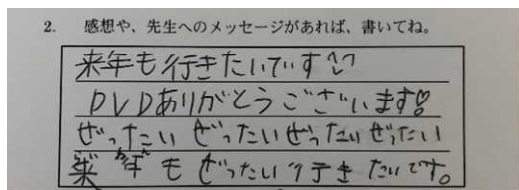 2. 感想や、先生へのメッセージがあれば、書いてね。
来年も行きたいです♡
DVDありがとうございます♡
ぜったい ぜったいぜったいぜったい
来年もぜったい行きたいです。